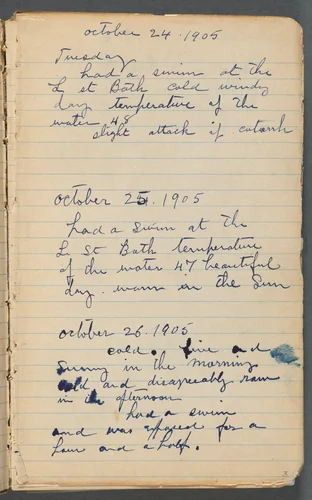 october 24. 1905
Tuesday
had a swim at the
L st Bath cold windy
day temperature of the
water 48
slight attack if catarrh
october 25. 1905
had a swim at the
L. St Bath temperature
of the water 47 beautiful
day. warm in the Sun
october 26. 1905
cold. fine and
sunny in the morning
cold and disagreeably raw
in the afternoon
had a swim
and was exposed for a
hour and a half.